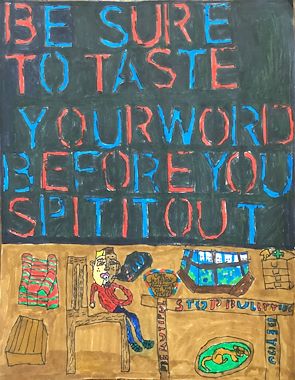 BE SURE
TO TASTE
YOUR WORD
BEFORE YOU
SPIT IT OUT
STOP BULLYING
BE YOU